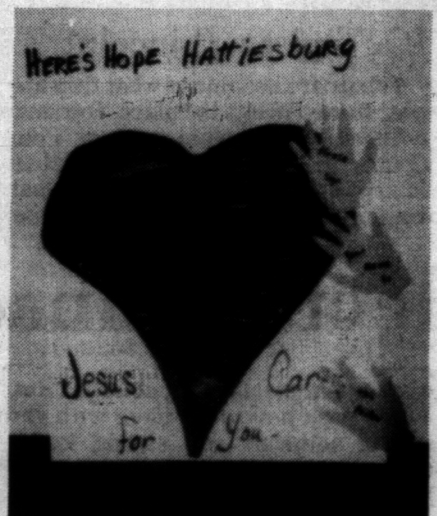 HERE'S HOPE HATTIESBURG
Jesus
for You.